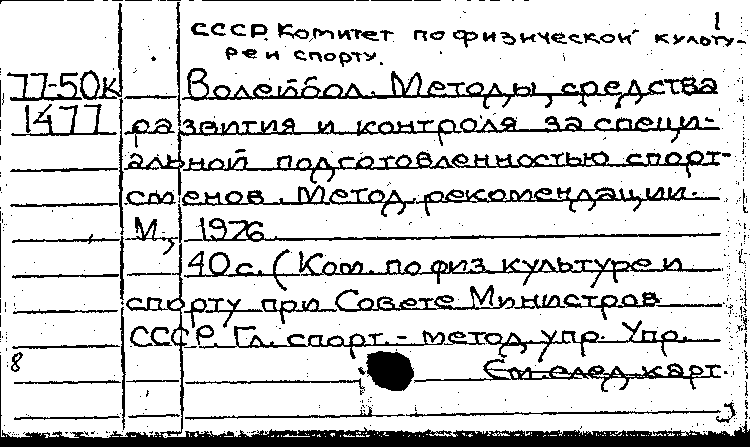 1
СССР. Комитет по физической культу-
ре и спорту.
77-50к Волейбол. Методы, средства
1477 развития и контроля за специ-
альной подготовленностью спорт-
сменов. Метод. рекомендации.
М., 1976.
40с. (Ком. по физ. культуре и
спорту при Совете Министров
СССР. Гл. спорт.-метод. упр. Упр.
8 См. след. карт.